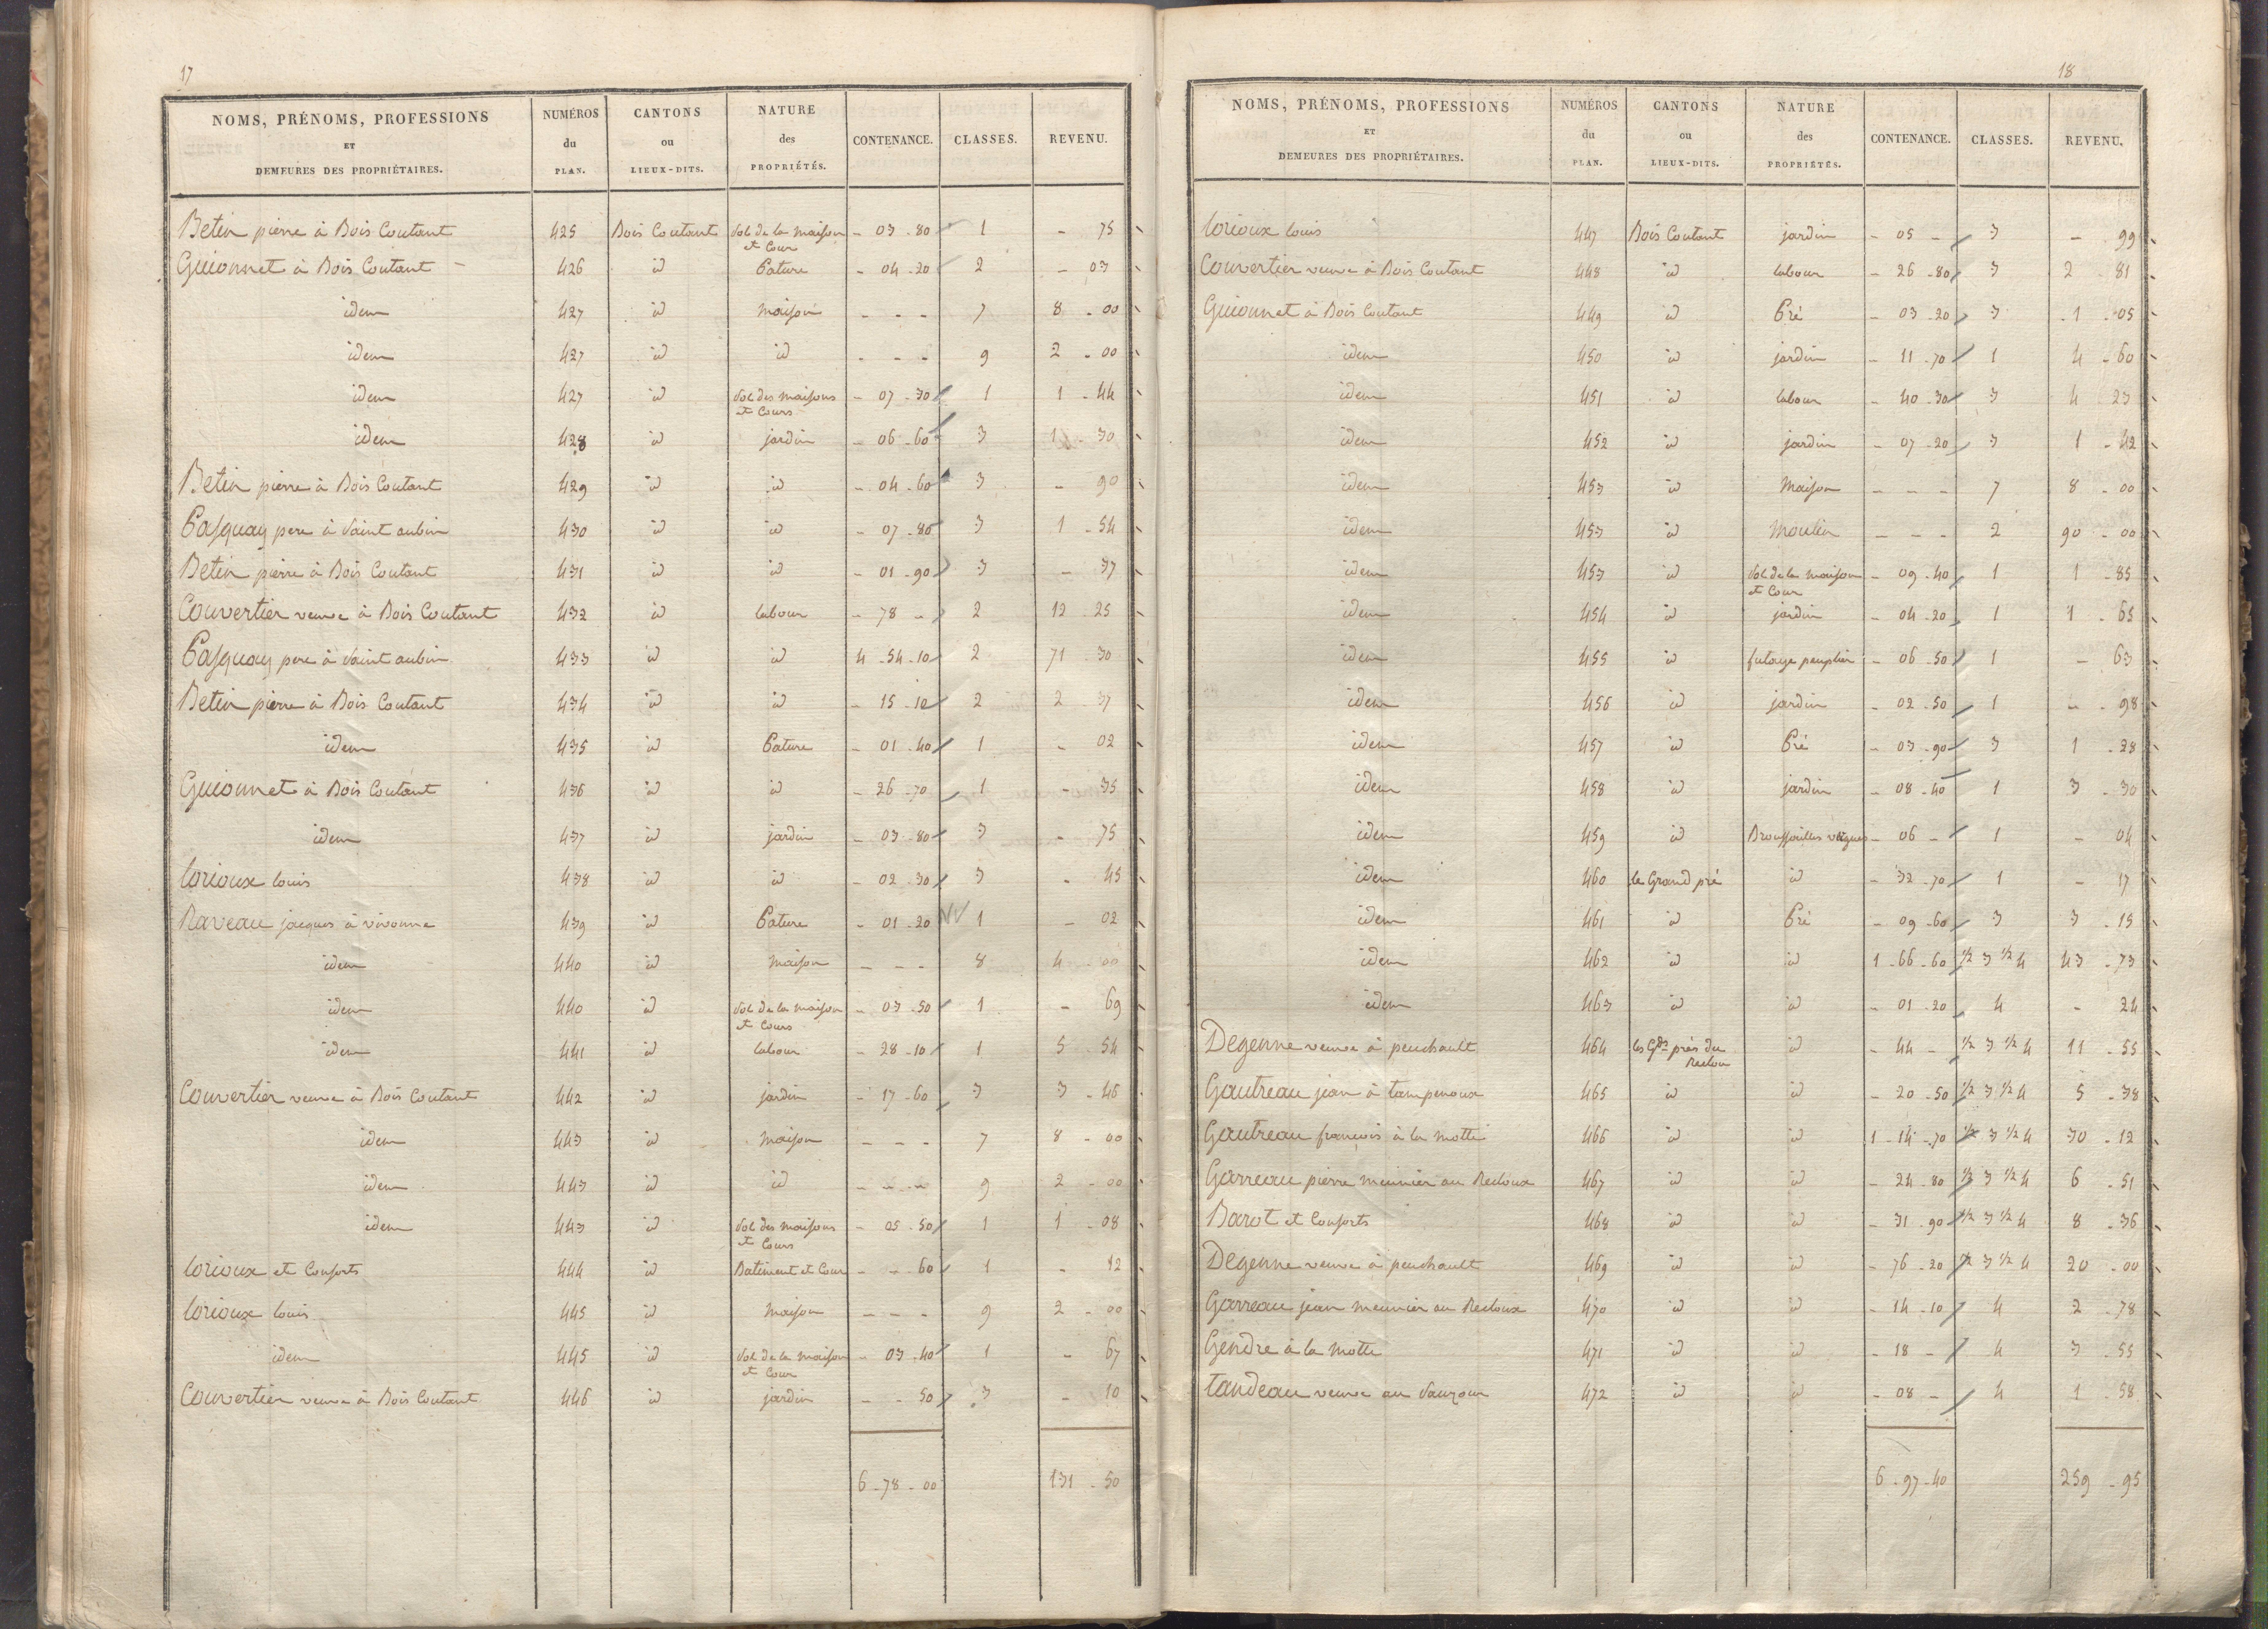 17
NOMS, PRÉNOMS, PROFESSIONS ET DEMEURES DES PROPRIÉTAIRES. | NUMÉROS du PLAN. | CANTONS ou LIEUX-DITS. | NATURE des PROPRIÉTÉS. | CONTENANCE. | CLASSES. | REVENU.
Betin pierre à Bois Coutant 425 Bois Coutant Sol de la maison et Cour - 03 - 80 1 - 75
Guionnet à Bois Coutant 426 id Pature - 04 - 20 2 - 03
idem 427 id maison - - - 7 8 - 00
idem 427 id id - - - 9 2 - 00
idem 427 id Sol des maisons et Cours - 07 - 30 1 1 - 44
idem 428 id jardin - 06 - 60 3 1 - 30
Betin pierre à Bois Coutant 429 id id - 04 - 60 3 - 90
Pasquay pere à Saint aubin 430 id id - 07 - 80 3 1 - 54
Betin pierre à Bois Coutant 431 id id - 01 - 90 3 - 37
Couvertier veuve à Bois Coutant 432 id labour - 78 - 2 12 - 25
Pasquay pere à Saint aubin 433 id id 4 - 54 - 10 2 71 - 30
Betin pierre à Bois Coutant 434 id id - 15 - 10 2 2 - 37
idem 435 id Pature - 01 - 40 1 - 02
Guionnet à Bois Coutant 436 id id - 26 - 70 1 - 35
idem 437 id jardin - 03 - 80 3 - 75
lorioux louis 438 id id - 02 - 30 3 - 45
Raveau jacques à vivonne 439 id Pature - 01 - 20 1 - 02
idem 440 id maison - - - 8 4 - 00
idem 440 id Sol de la maison et Cours - 03 - 50 1 - 69
idem 441 id labour - 28 - 10 1 5 - 54
Couvertier veuve à Bois Coutant 442 id jardin - 17 - 60 3 3 - 46
idem 443 id maison - - - 7 8 - 00
idem 443 id id - - - 9 2 - 00
idem 443 id Sol des maisons et Cours - 05 - 50 1 1 - 08
lorioux et Consorts 444 id Batiment et Cour - - 60 1 - 12
lorioux louis 445 id maison - - - 9 2 - 00
idem 445 id Sol de la maison et Cour - 03 - 40 1 - 67
Couvertier veuve à Bois Coutant 446 id jardin - - 50 3 - 10
6 - 78 - 00 131 - 50
18
NOMS, PRÉNOMS, PROFESSIONS ET DEMEURES DES PROPRIÉTAIRES. | NUMÉROS du PLAN. | CANTONS ou LIEUX-DITS. | NATURE des PROPRIÉTÉS. | CONTENANCE. | CLASSES. | REVENU.
lorioux louis 447 Bois Coutant jardin - 05 - 3 - 99
Couvertier veuve à Bois Coutant 448 id labour - 26 - 80 3 2 - 81
Guionnet à Bois Coutant 449 id Pré - 03 - 20 3 1 - 05
idem 450 id jardin - 11 - 70 1 4 - 60
idem 451 id labour - 40 - 30 3 4 23
idem 452 id jardin - 07 - 20 3 1 - 42
idem 453 id Maison - - - 7 8 - 00
idem 453 id Moulin - - - 2 90 - 00
idem 453 id Sol de la maison et Cour - 09 - 40 1 1 - 85
idem 454 id jardin - 04 - 20 1 1 - 65
idem 455 id futaye peuplier - 06 - 50 1 - 63
idem 456 id jardin - 02 - 50 1 - 98
idem 457 id Pré - 03 - 90 3 1 - 28
idem 458 id jardin - 08 - 40 1 3 - 30
idem 459 id Broussailles vagues - 06 - 1 - 04
idem 460 le Grand pré id - 32 - 70 1 - 17
idem 461 id Pré - 09 - 60 3 3 - 15
idem 462 id id 1 - 66 - 60 1/2 3 1/2 4 43 - 73
idem 463 id id - 01 - 20 4 - 24
Degenne veuve à peuchault 464 les Gds près du Recloux id - 44 - 1/2 3 1/2 4 11 - 55
Gautreau jean à tampenoux 465 id id - 20 - 50 1/2 3 1/2 4 5 - 38
Gautreau francois à la motte 466 id id 1 - 14 - 70 1/2 3 1/2 4 30 - 12
Garreau pierre meunier au Recloux 467 id id - 24 - 80 1/2 3 1/2 4 6 - 51
Barot et Consorts 468 id id - 31 - 90 1/2 3 1/2 4 8 - 36
Degenne veuve à peuchault 469 id id - 76 - 20 1/2 3 1/2 4 20 - 00
Garreau jean meunier au Recloux 470 id id - 14 - 10 4 2 - 78
Gendre à la Motte 471 id id - 18 - 4 3 - 55
tandeau veuve au Sauzour 472 id id - 08 - 4 1 - 58
6 - 97 - 40 259 - 95